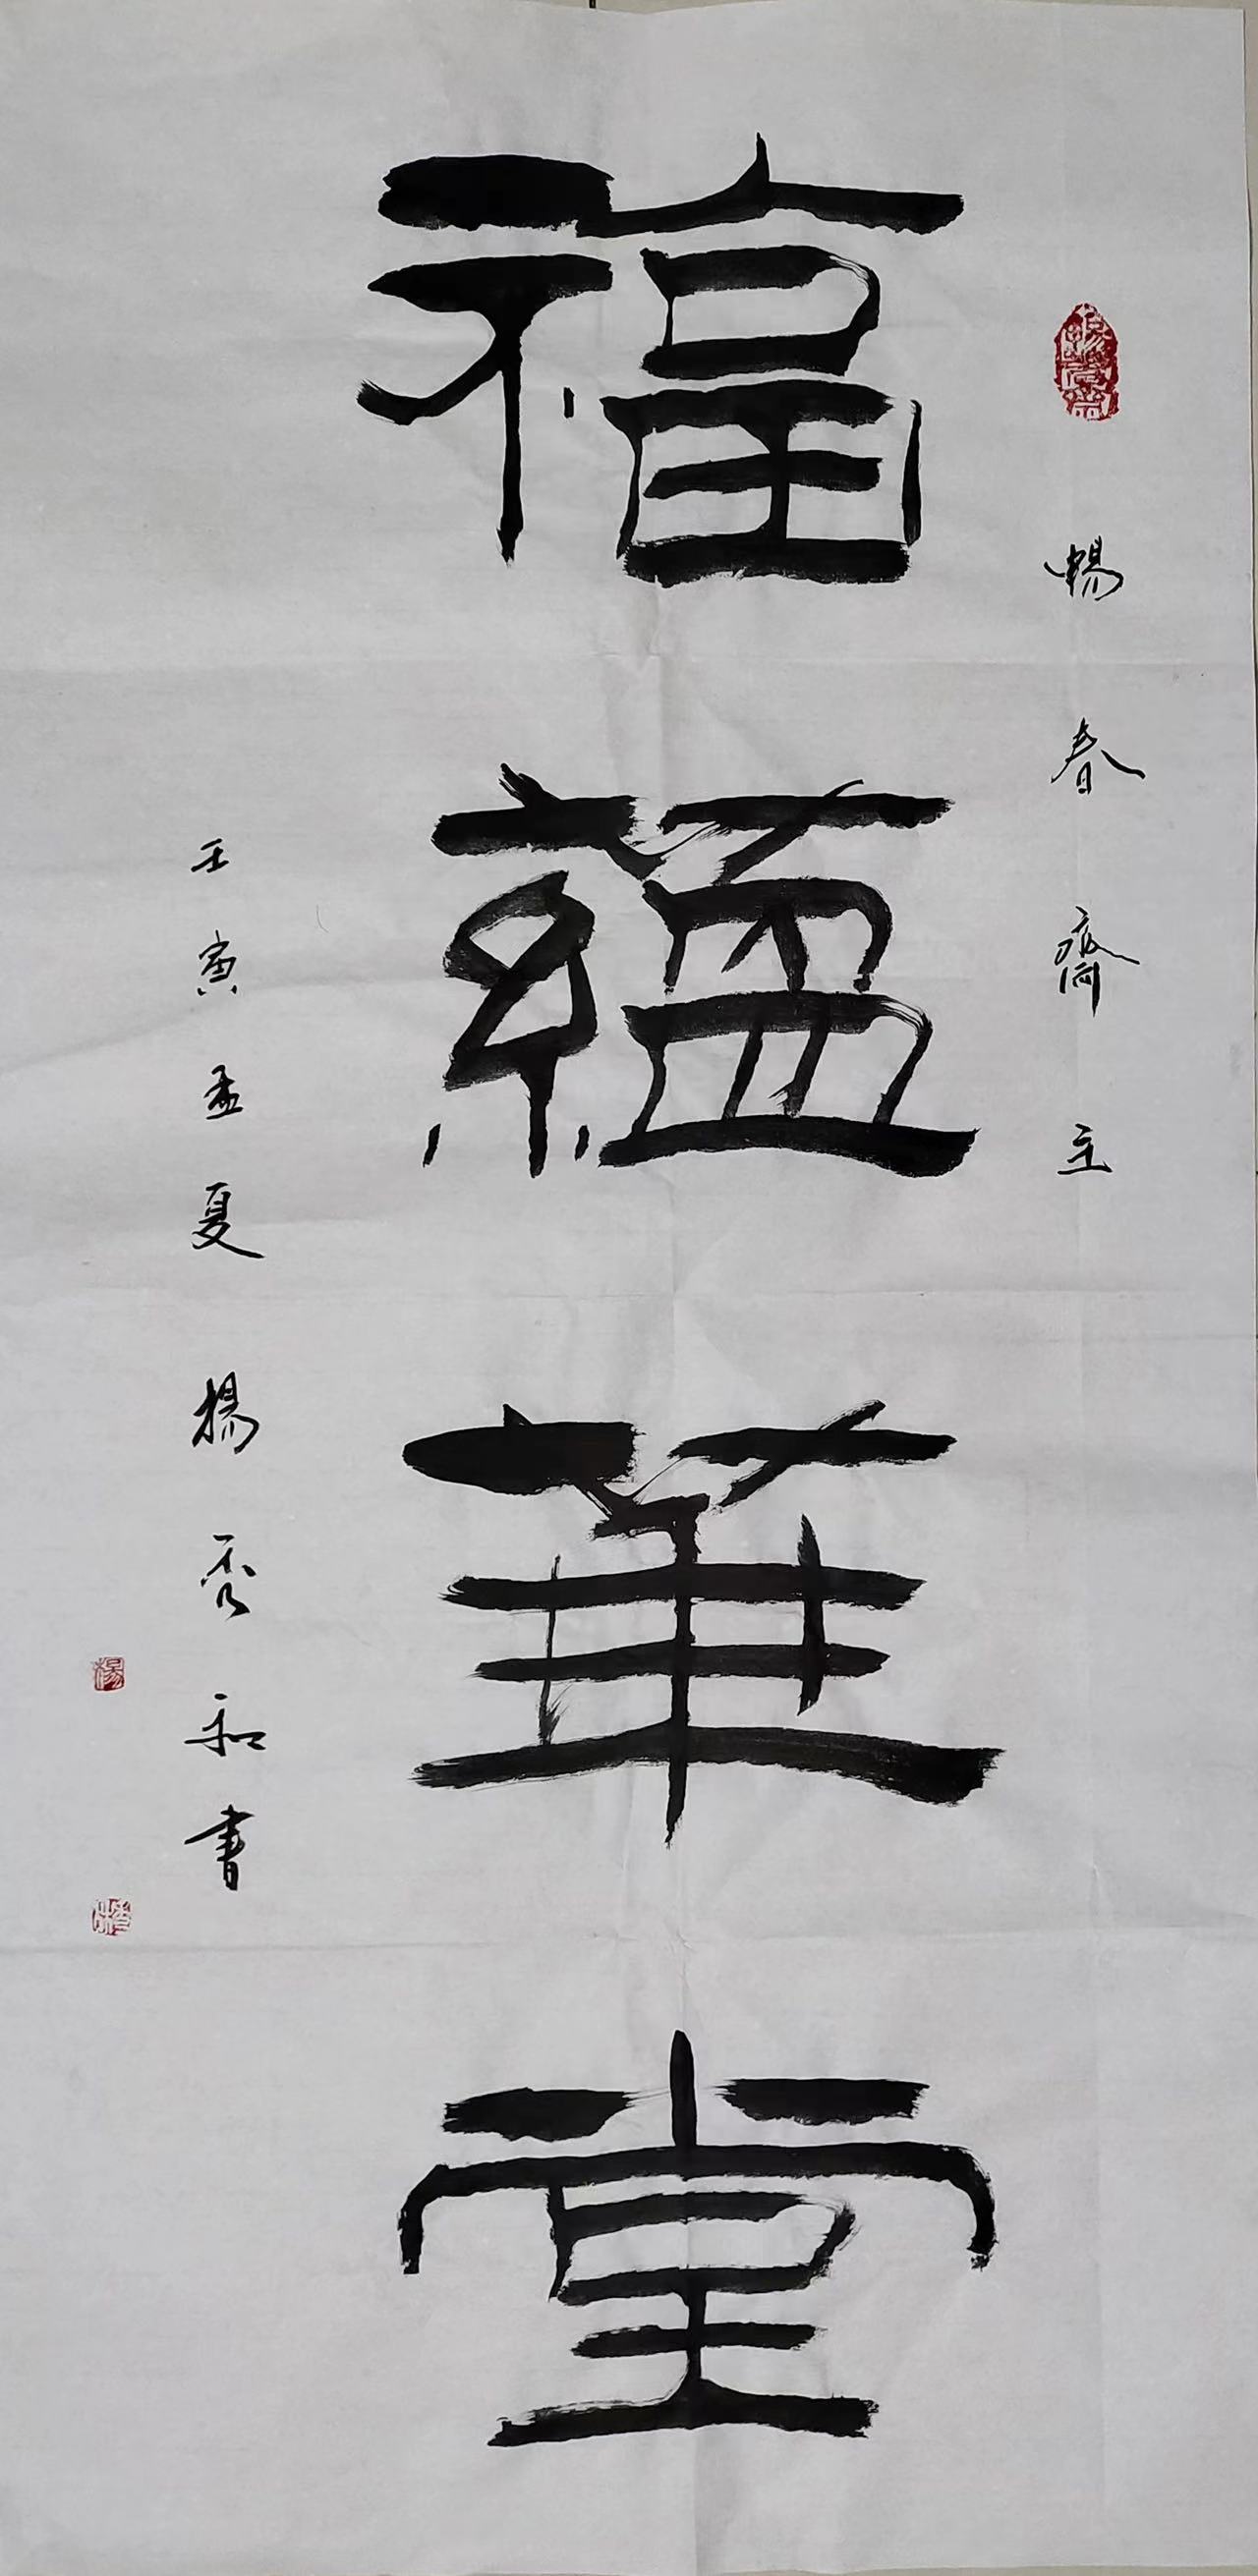 暢春齋主
福蘊華堂
壬寅孟夏 楊秀和書
楊